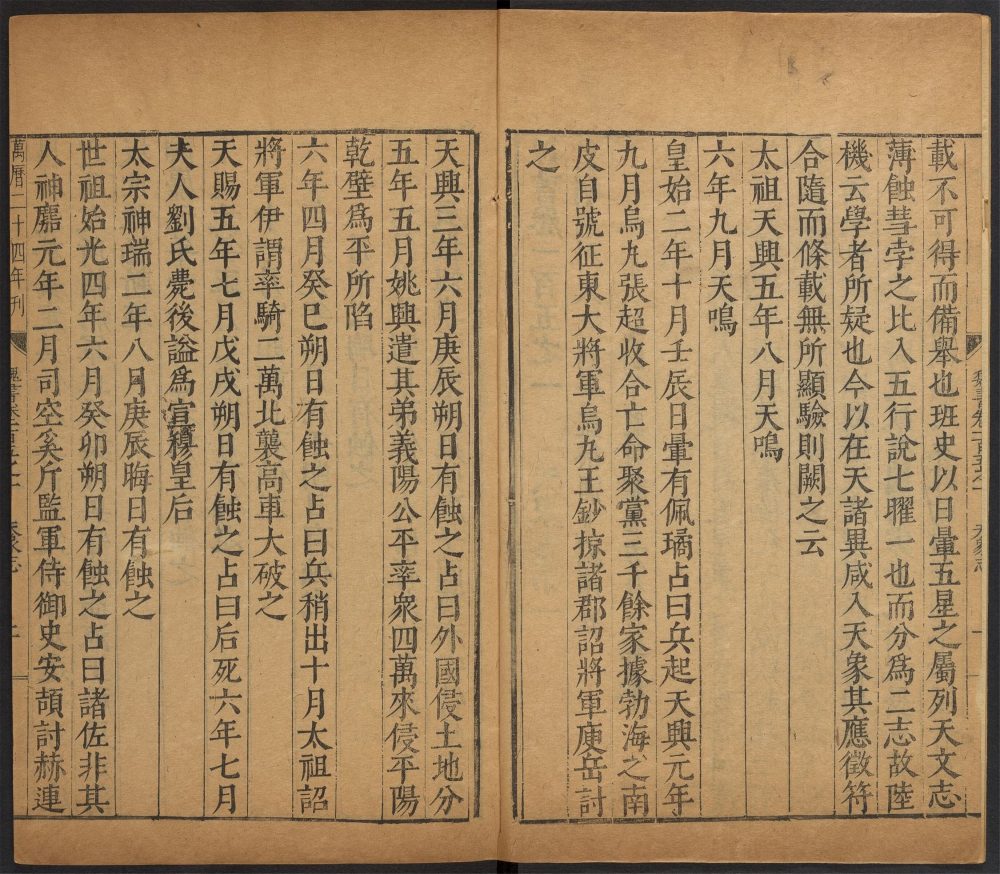 載不可得而備舉也班史以日暈五星之屬列天文志
薄蝕彗孛之比入五行說七曜一也而分爲二志故陸
機云學者所疑也今以在天諸異咸入天象其應徵符
合隨而條載無所顯驗則闕之云
太祖天興五年八月天鳴
六年九月天鳴
皇始二年十月壬辰日暈有佩璚占曰兵起天興元年
九月烏丸張超收合亡命聚黨三千餘家據勃海之南
皮自號征東大將軍烏丸王鈔掠諸郡詔將軍庾岳討
之
天興三年六月庚辰朔日有蝕之占曰外國侵土地分
五年五月姚興遣其弟義陽公平率衆四萬來侵平陽
乾壁爲平所陷
六年四月癸巳朔日有蝕之占曰兵稍出十月太祖詔
將軍伊謂率騎二萬北襲高車大破之
天賜五年七月戊戌朔日有蝕之占曰后死六年七月
夫人劉氏薨後謚爲宣穆皇后
太宗神瑞二年八月庚辰晦日有蝕之
世祖始光四年六月癸卯朔日有蝕之占曰諸佐非其
人神䴥元年二月司空奚斤監軍侍御史安頡討赫連
萬曆二十四年刊
天象志 二